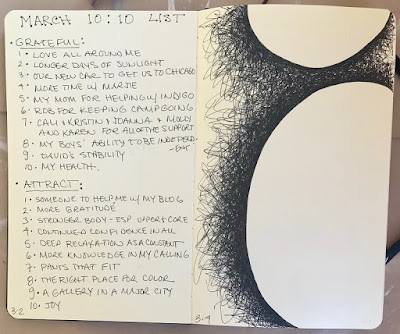 MARCH 10:10 LIST
• GRATEFUL:
1• LOVE ALL AROUND ME
2• LONGER DAYS OF SUNLIGHT
3• OUR NEW CAR TO GET US TO CHICAGO
4• MORE TIME W/ MARJIE
5• MY MOM FOR HELPING W/ INDIGO
6• ROB FOR KEEPING CAMP GOING
7• CALI & KRISTIN & JOANNA & MOLLY
AND KAREN FOR ALL OF THE SUPPORT
8• MY BOYS' ABILITY TO BE INDEPEND-
-ENT
9• DAVID'S STABILITY
10• MY HEALTH.
• ATTRACT:
1• SOMEONE TO HELP ME W/ MY BLOG
2• MORE GRATITUDE
3• STRONGER BODY - ESP UPPER & CORE
4• CONTINUED CONFIDENCE IN ALL
5• DEEP RELAXATION AS A CONSTANT
6• MORE KNOWLEDGE IN MY CALLING
7• PANTS THAT FIT
8• THE RIGHT PLACE FOR COLOR
9• A GALLERY IN A MAJOR CITY
10• JOY
3•2
3•4